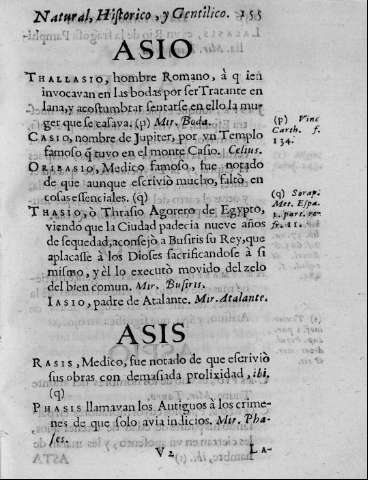 Natural, Historico, y Gentilico. 155
ASIO
THALLASIO, hombre Romano, à q ien
invocavan en las bodas por ser Tratante en
lana, y acostumbrar sentarse en ello la mu-
ger que se casava. (p) Mir. Boda.
(p) Vinc
Carth. f.
134.
CASIO, nombre de Jupiter, por vn Templo
famoso q̃ tuvo en el monte Casio. Celius.
ORIBASIO, Medico famoso, fue notado
de que aunque escriviò mucho, faltò en
cosas essenciales. (q)
(q) Sorap.
Met. Espa.
THASIO, ò Thrasio Agorero de Egypto,
viendo que la Ciudad padecia nueve años
de sequedad, aconsejò a Busiris su Rey, que
aplacasse à los Dioses sacrificandose à si
mismo, y èl lo executò movido del zelo
del bien comun. Mir. Busiris.
IASIO, padre de Atalante. Mir. Atalante.
ASIS
RASIS, Medico, fue notado de que escriviò
sus obras con demasiada prolixidad, ibi.
(q)
PHASIS llamavan los Antiguos à los crime-
nes de que solo avia indicios. Mir. Pha-
ses.
V2 LA-